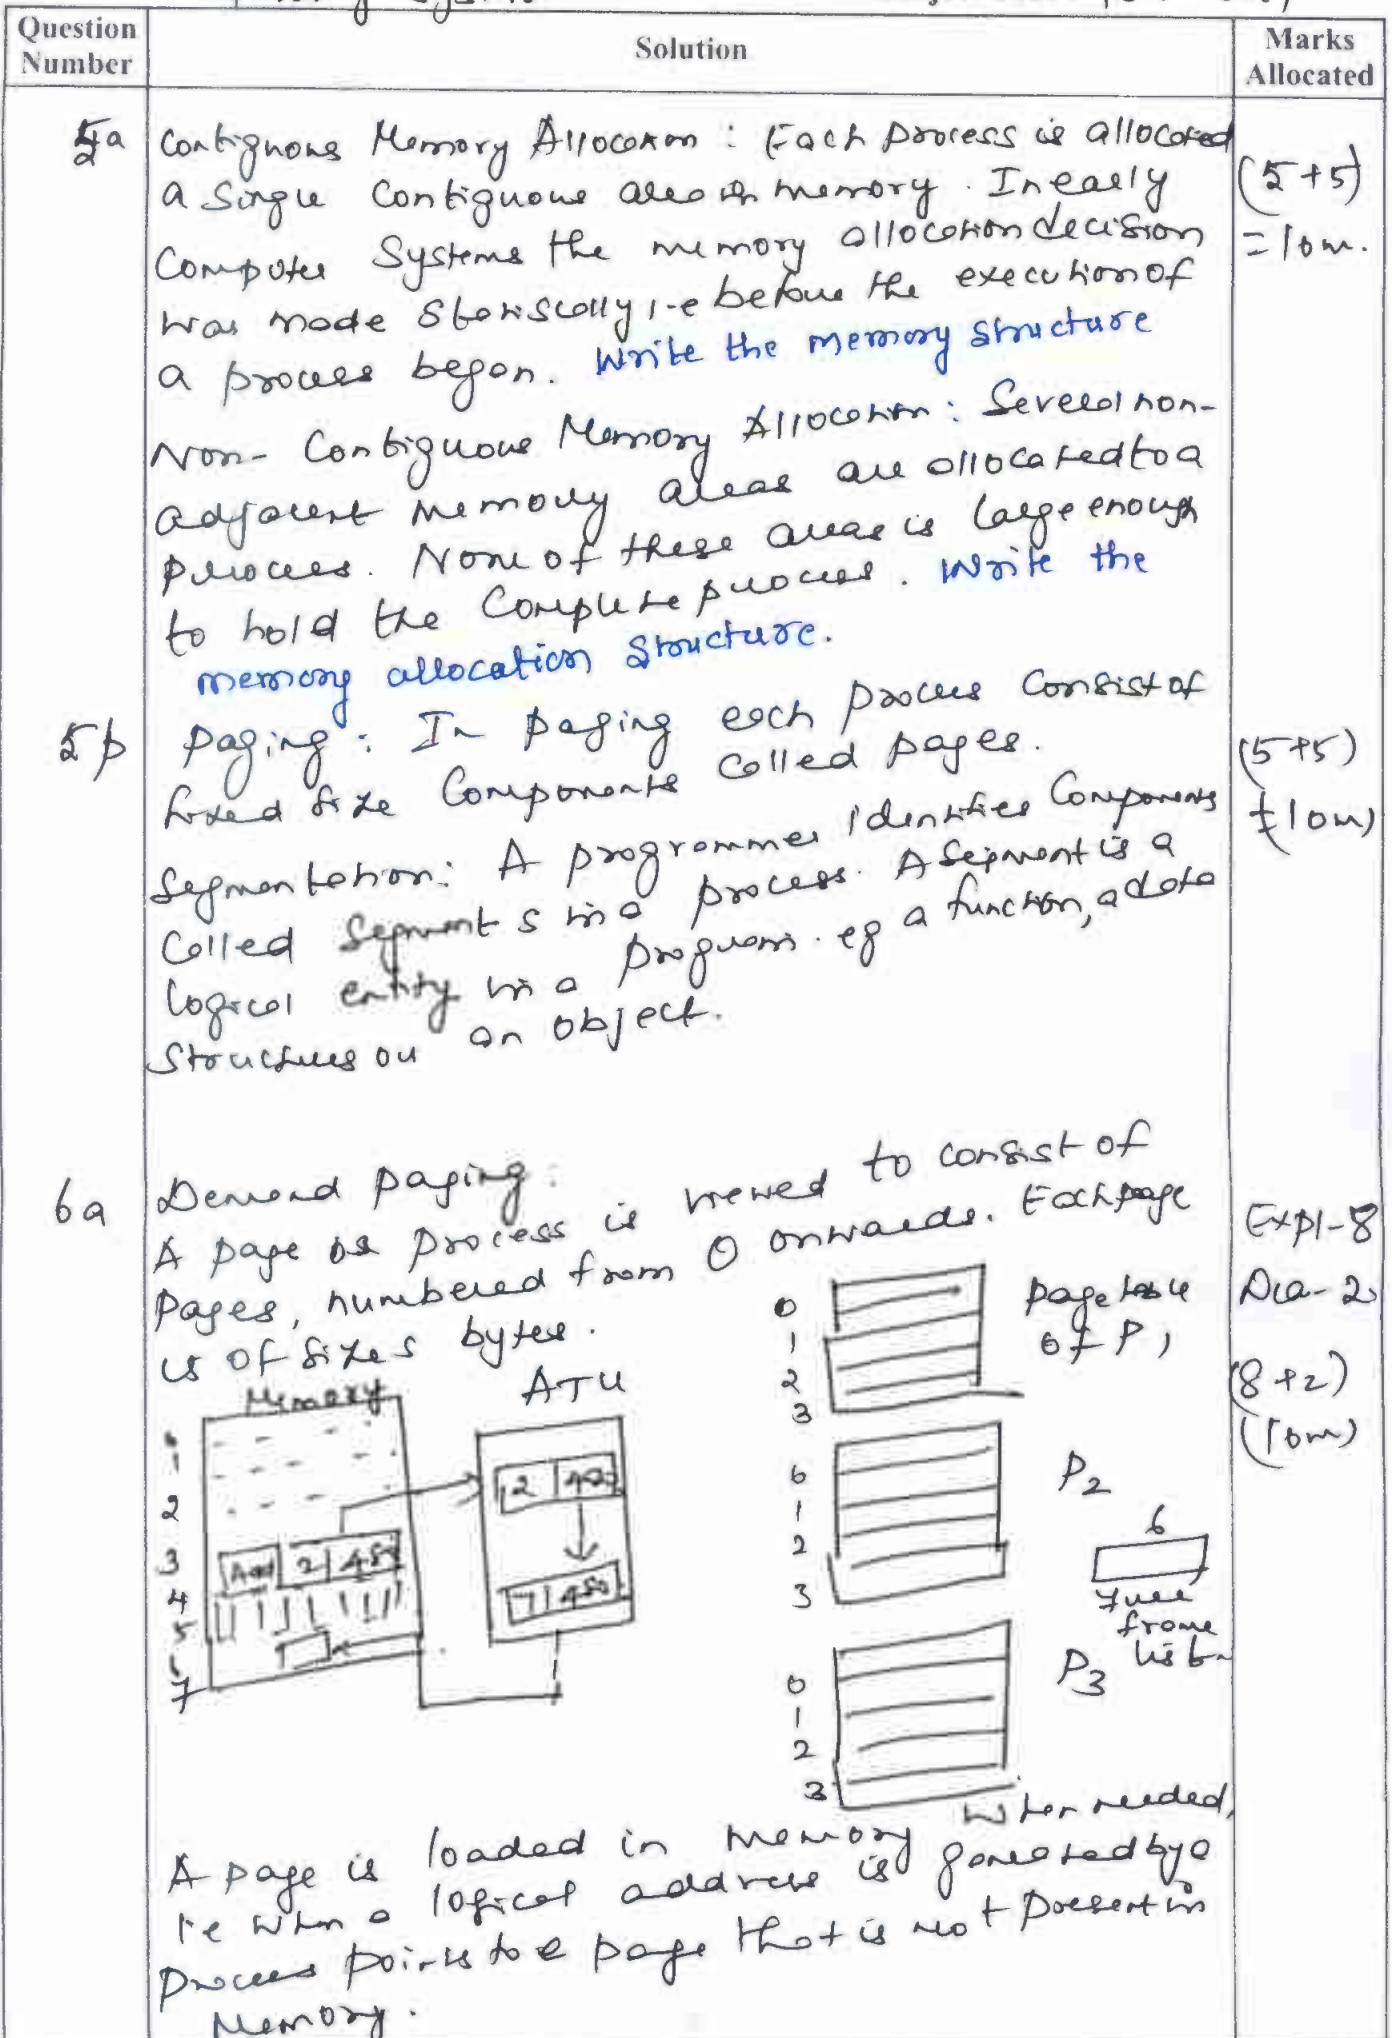 Question Number
Solution
Marks Allocated
5a
Contiguous Memory Allocation : Each process is allocated
a single contiguous area in memory. In early
Computer Systems the memory allocation decision
was made statically i.e before the execution of
a process began. Write the memory structure
(5+5)
=10m.
Non- Contiguous Memory Allocation: Several non-
adjacent memory areas are allocated to a
process. None of these areas is large enough
to hold the Complete process. Write the
memory allocation structure.
5b
Paging: In paging each process consist of
fixed size Components called pages.
(5+5)
=10m)
Segmentation: A programmer identifies Components
Called Segments in a process. A Segment is a
logical entity in a program. eg a function, a data
Structures or an object.
6a
Demand paging:
A page or process is viewed to consist of
Pages, numbered from 0 onwards. Each page
is of size s bytes.
Expl-8
Dia-2
(8+2)
(10m)
Memory
ATU
0
1
2
3
4
5
6
7
Add 2 480
2 480
7 480
0
1
2
3
page table
of P1
0
1
2
3
P2
6
Free
frame
list
0
1
2
3
P3
A page is loaded in memory when needed,
i.e when a logical address is generated by a
process points to a page that is not present in
Memory.